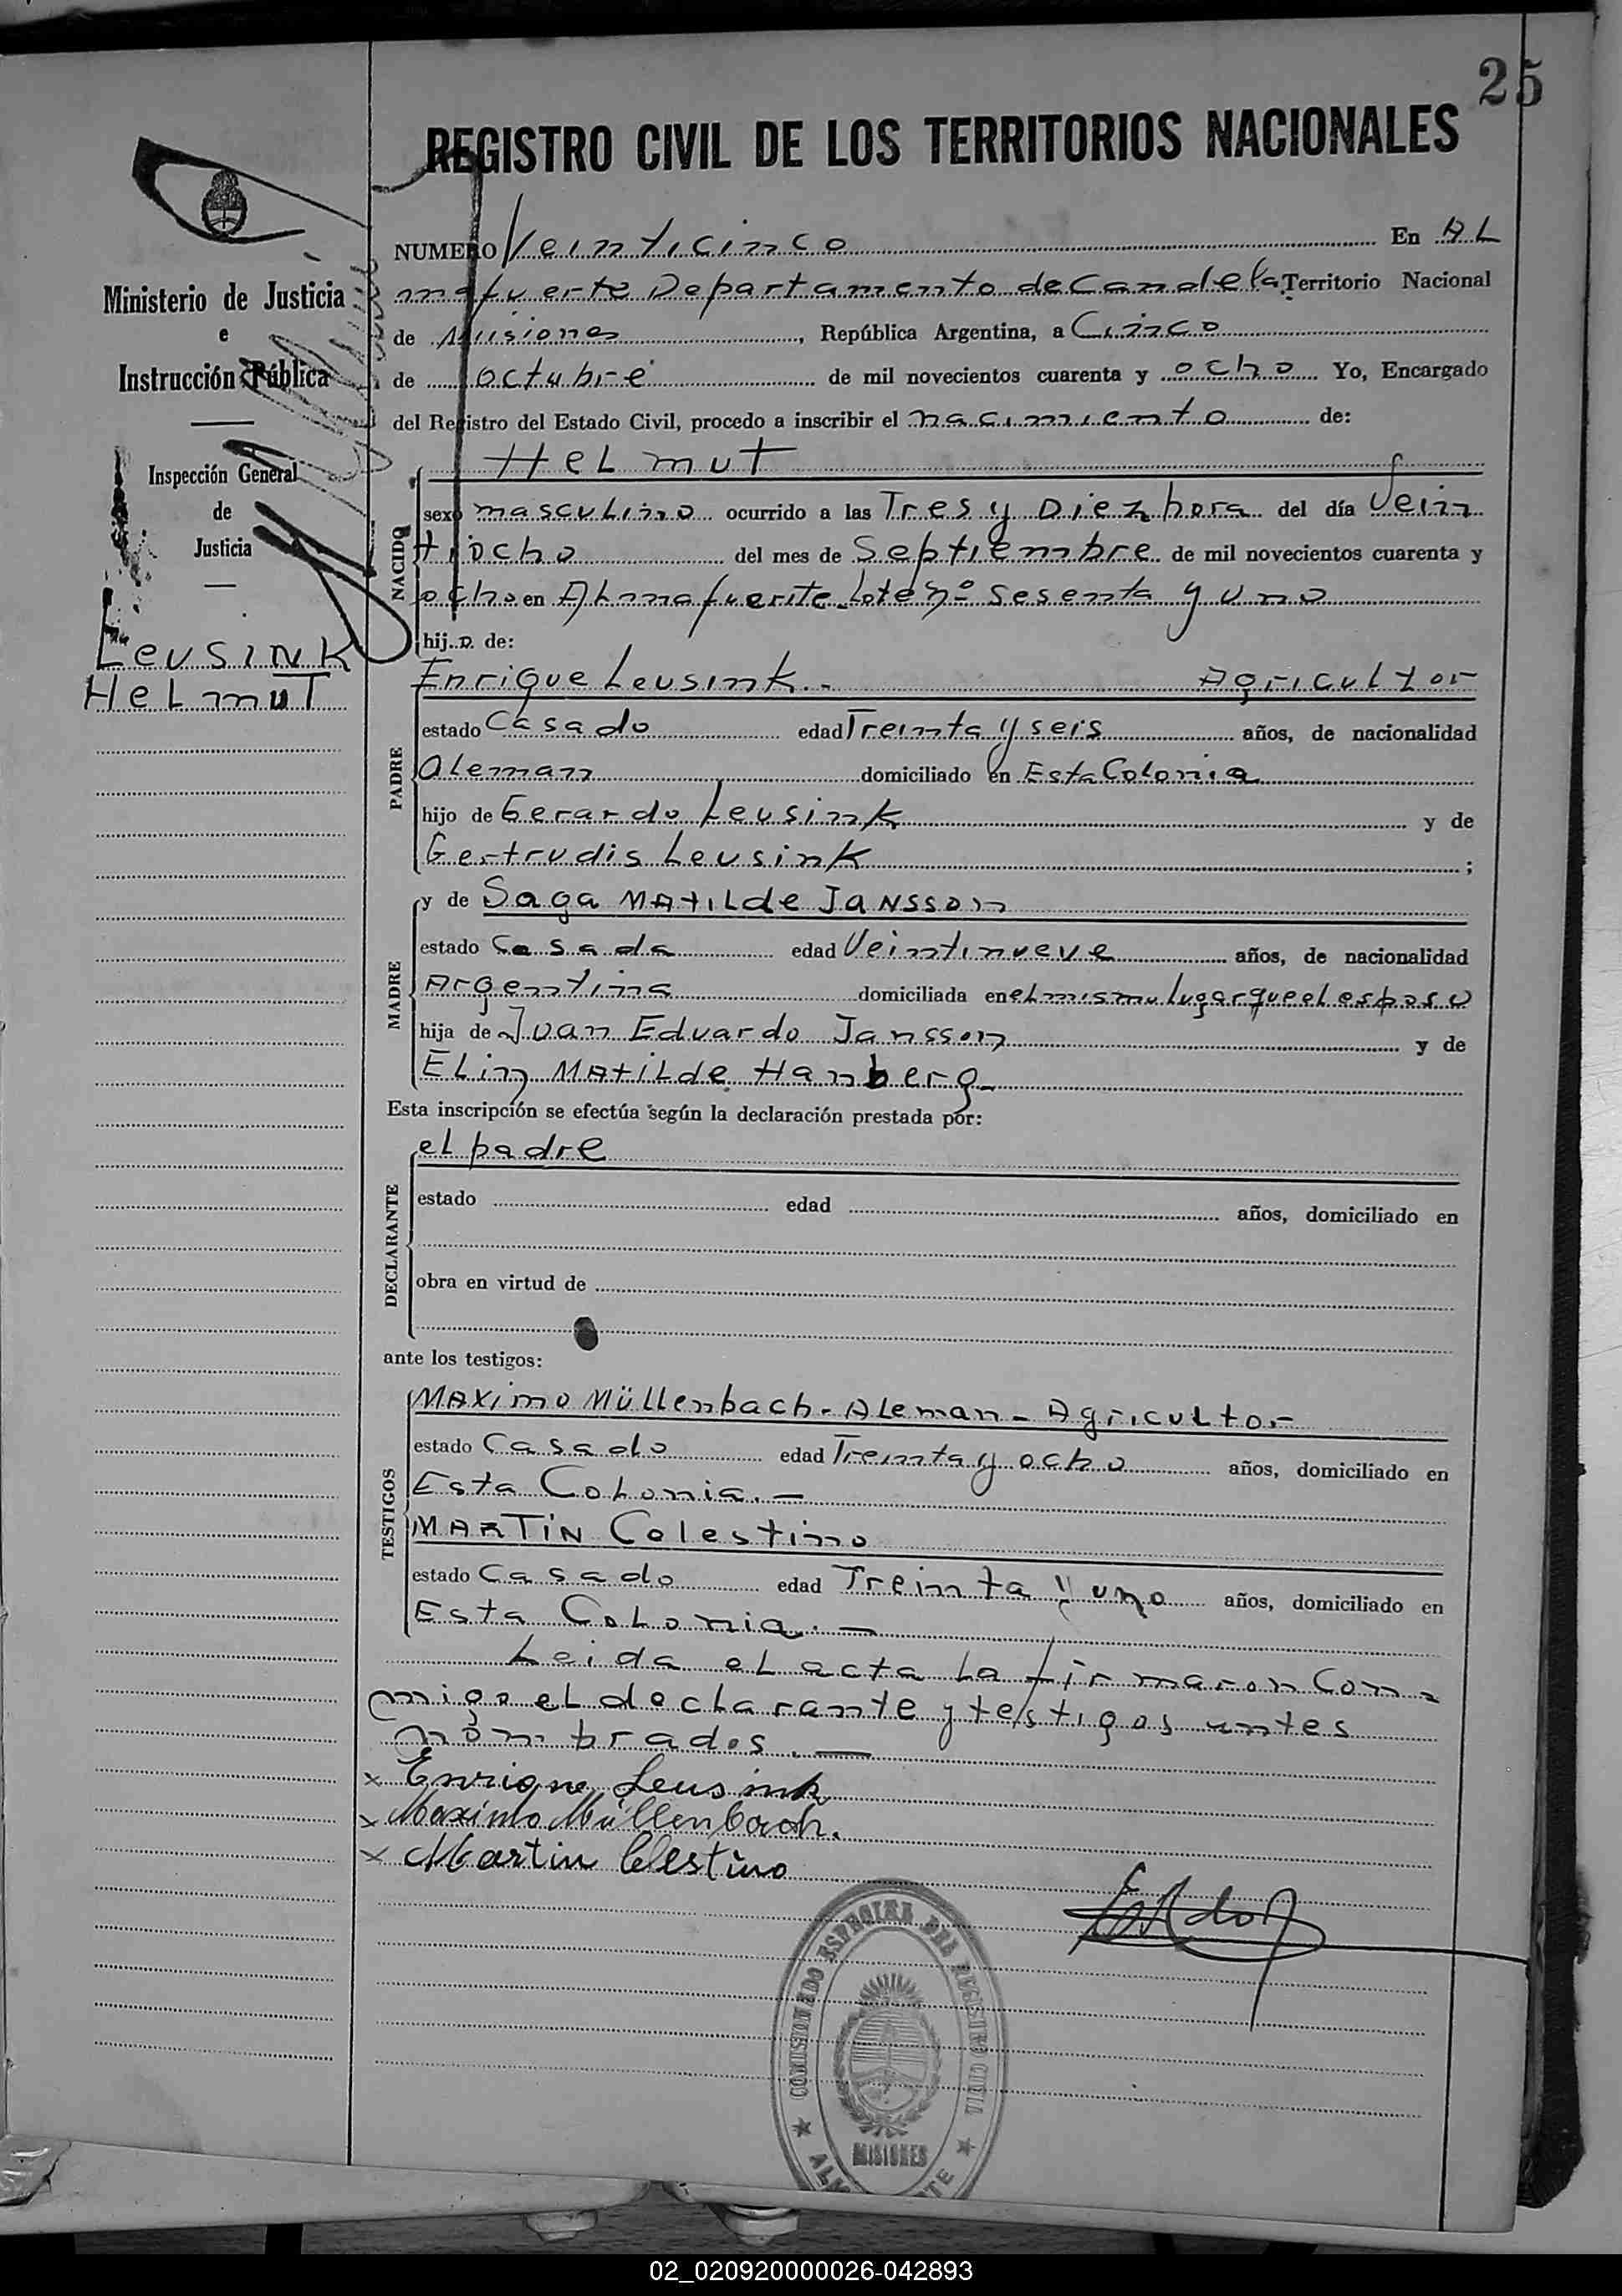 25
REGISTRO CIVIL DE LOS TERRITORIOS NACIONALES
Ministerio de Justicia
e
Instrucción Pública
Inspección General
de
Justicia
Leusink
Helmut
NUMERO Veinticinco En AL
mafuerte Departamento de Candelaria Territorio Nacional
de Misiones, República Argentina, a Cinco
de octubre de mil novecientos cuarenta y ocho Yo, Encargado
del Registro del Estado Civil, procedo a inscribir el nacimiento de:
NACIDO
Helmut
sexo masculino ocurrido a las Tres y Diez hora del día Vein
tiocho del mes de Septiembre de mil novecientos cuarenta y
ocho en Almafuerte Lote nº sesenta y uno
hij.o de:
PADRE
Enrique Leusink.- Agricultor
estado Casado edad Treinta y seis años, de nacionalidad
Aleman domiciliado en Esta Colonia
hijo de Gerardo Leusink y de
Gertrudis Leusink ;
MADRE
y de Saga Matilde Jansson
estado Casada edad Veintinueve años, de nacionalidad
Argentina domiciliada en el mismo lugar que el esposo
hija de Juan Eduardo Jansson y de
Elin Matilde Hanberg-
Esta inscripción se efectúa según la declaración prestada por:
DECLARANTE
el padre
estado edad años, domiciliado en
obra en virtud de
ante los testigos:
TESTIGOS
Maximo Müllenbach - Aleman - Agricultor
estado Casado edad Treinta y ocho años, domiciliado en
Esta Colonia.-
Martin Celestino
estado Casado edad Treinta y uno años, domiciliado en
Esta Colonia.-
Leida el acta la firmaron con=
migo el declarante y testigos antes
nombrados.-
x Enrique Leusink
x Maximo Müllenbach.
x Martin Celestino
ESPECIAL DEL REGISTRO CIVIL
MISIONES
02_020920000026-042893